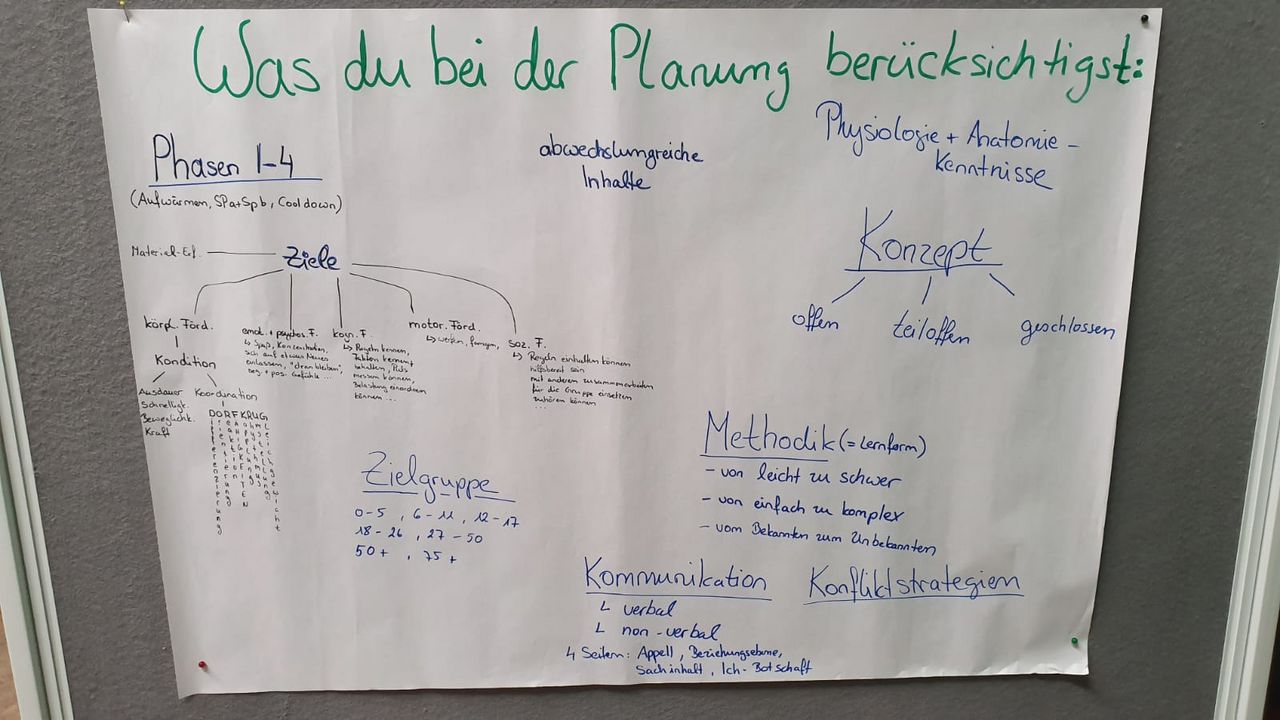 Was du bei der Planung berücksichtigst:
Phasen 1-4
(Aufwärmen, SPa+Spb, Cooldown)
abwechslungreiche
Inhalte
Physiologie + Anatomie -
Kenntnisse
Material-Erf.
Ziele
körpl. Förd.
Kondition
Ausdauer
Schnelligt.
Beweglicht.
Kraft
Koordination
DORFKRUG
emot. + psychos. F.
↳ Spaß, Konzentration,
sich auf etwas Neues
einlassen, "dran bleiben",
neg. + pos. Gefühle ...
kogn. F.
↳ Regeln kennen,
Taktik kennen +
behalten, Puls
messen können,
Belastung einordnen
können ...
motor. Förd.
↳ werfen, fangen,
soz. F.
↳ Regeln einhalten können
hilfsbereit sein
mit anderen zusammenarbeiten
für die Gruppe einsetzen
zuhören können
...
Konzept
offen
teiloffen
geschlossen
Zielgruppe
0-5, 6-11, 12-17
18-26, 27-50
50+, 75+
Methodik (= Lernform)
- von leicht zu schwer
- von einfach zu komplex
- vom Bekannten zum Unbekannten
Kommunikation
L verbal
L non-verbal
4 Seiten: Appell, Beziehungsebene,
Sachinhalt, Ich-Botschaft
Konfliktstrategien